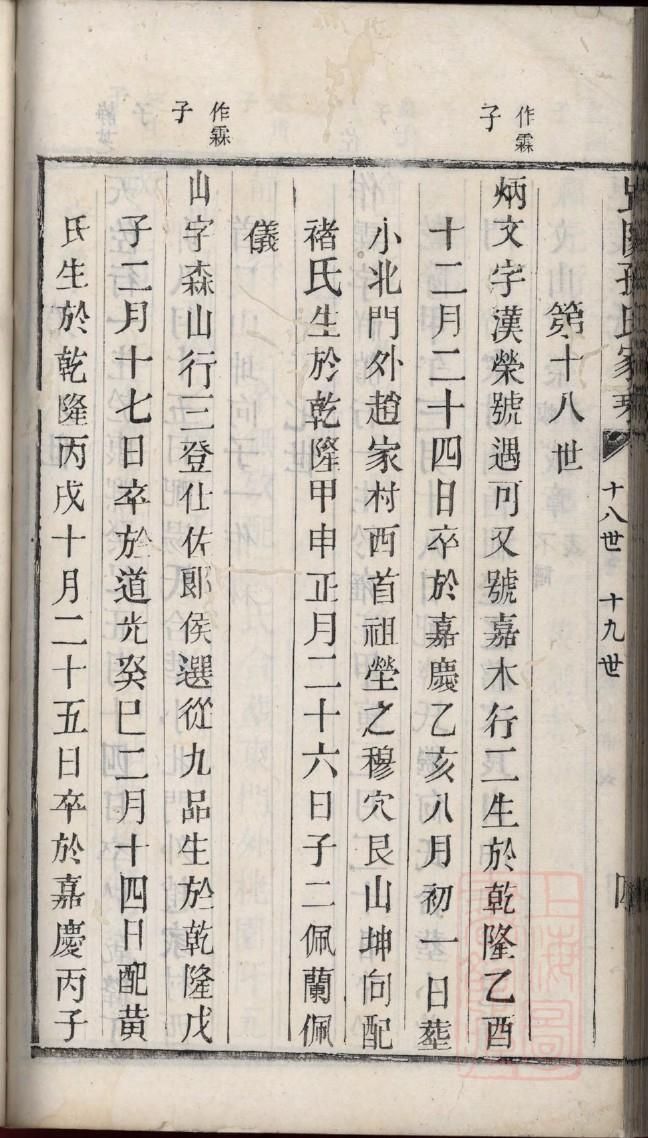 孫氏家
十八世 十九世
第十八世
作霖
子
炳文字漢榮號遇可又號嘉木行二生於乾隆乙酉
十二月二十四日卒於嘉慶乙亥八月初一日塟
小北門外趙家村西首祖塋之穆穴艮山坤向配
褚氏生於乾隆甲申正月二十六日子二佩蘭佩
儀
作霖
子
山字森山行三登仕佐郎侯選從九品生於乾隆戊
子二月十七日卒於道光癸巳二月十四日配黄
氏生於乾隆丙戌十月二十五日卒於嘉慶丙子
上海圖